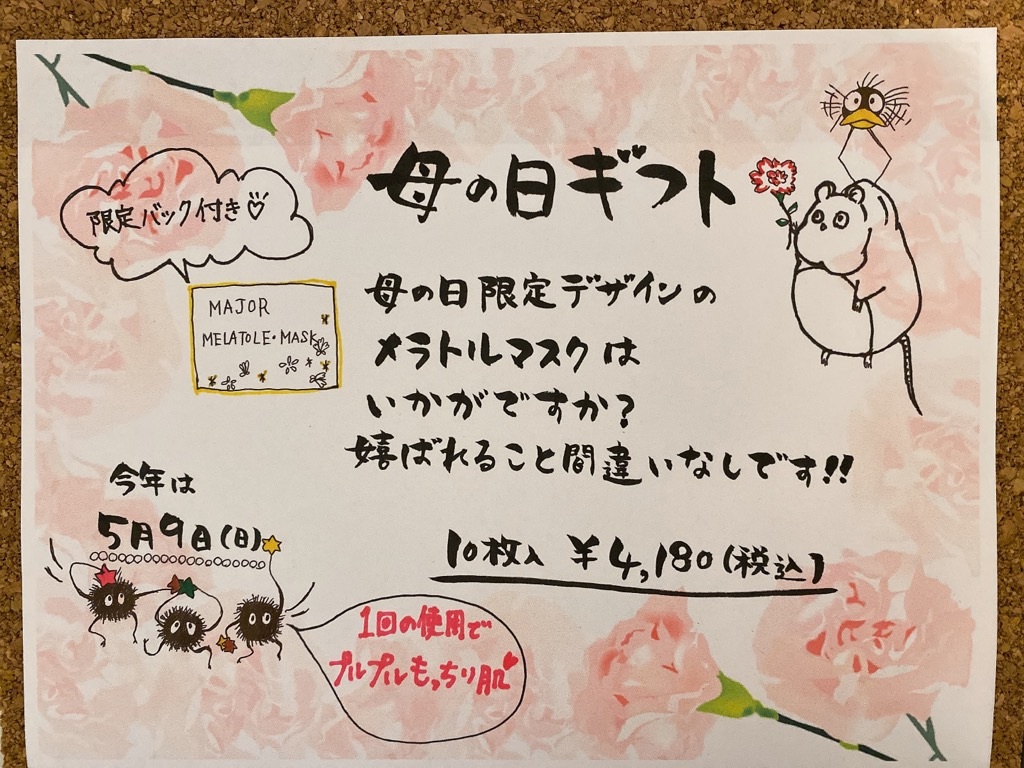 母の日ギフト
限定パック付き
MAJOR
MELATOLE・MASK
母の日限定デザインの
メラトルマスクは
いかがですか?
嬉ばれること間違いなしです!!
今年は
5月9日(日)
10枚入 ¥4,180(税込)
1回の使用で
プルプルもっちり肌